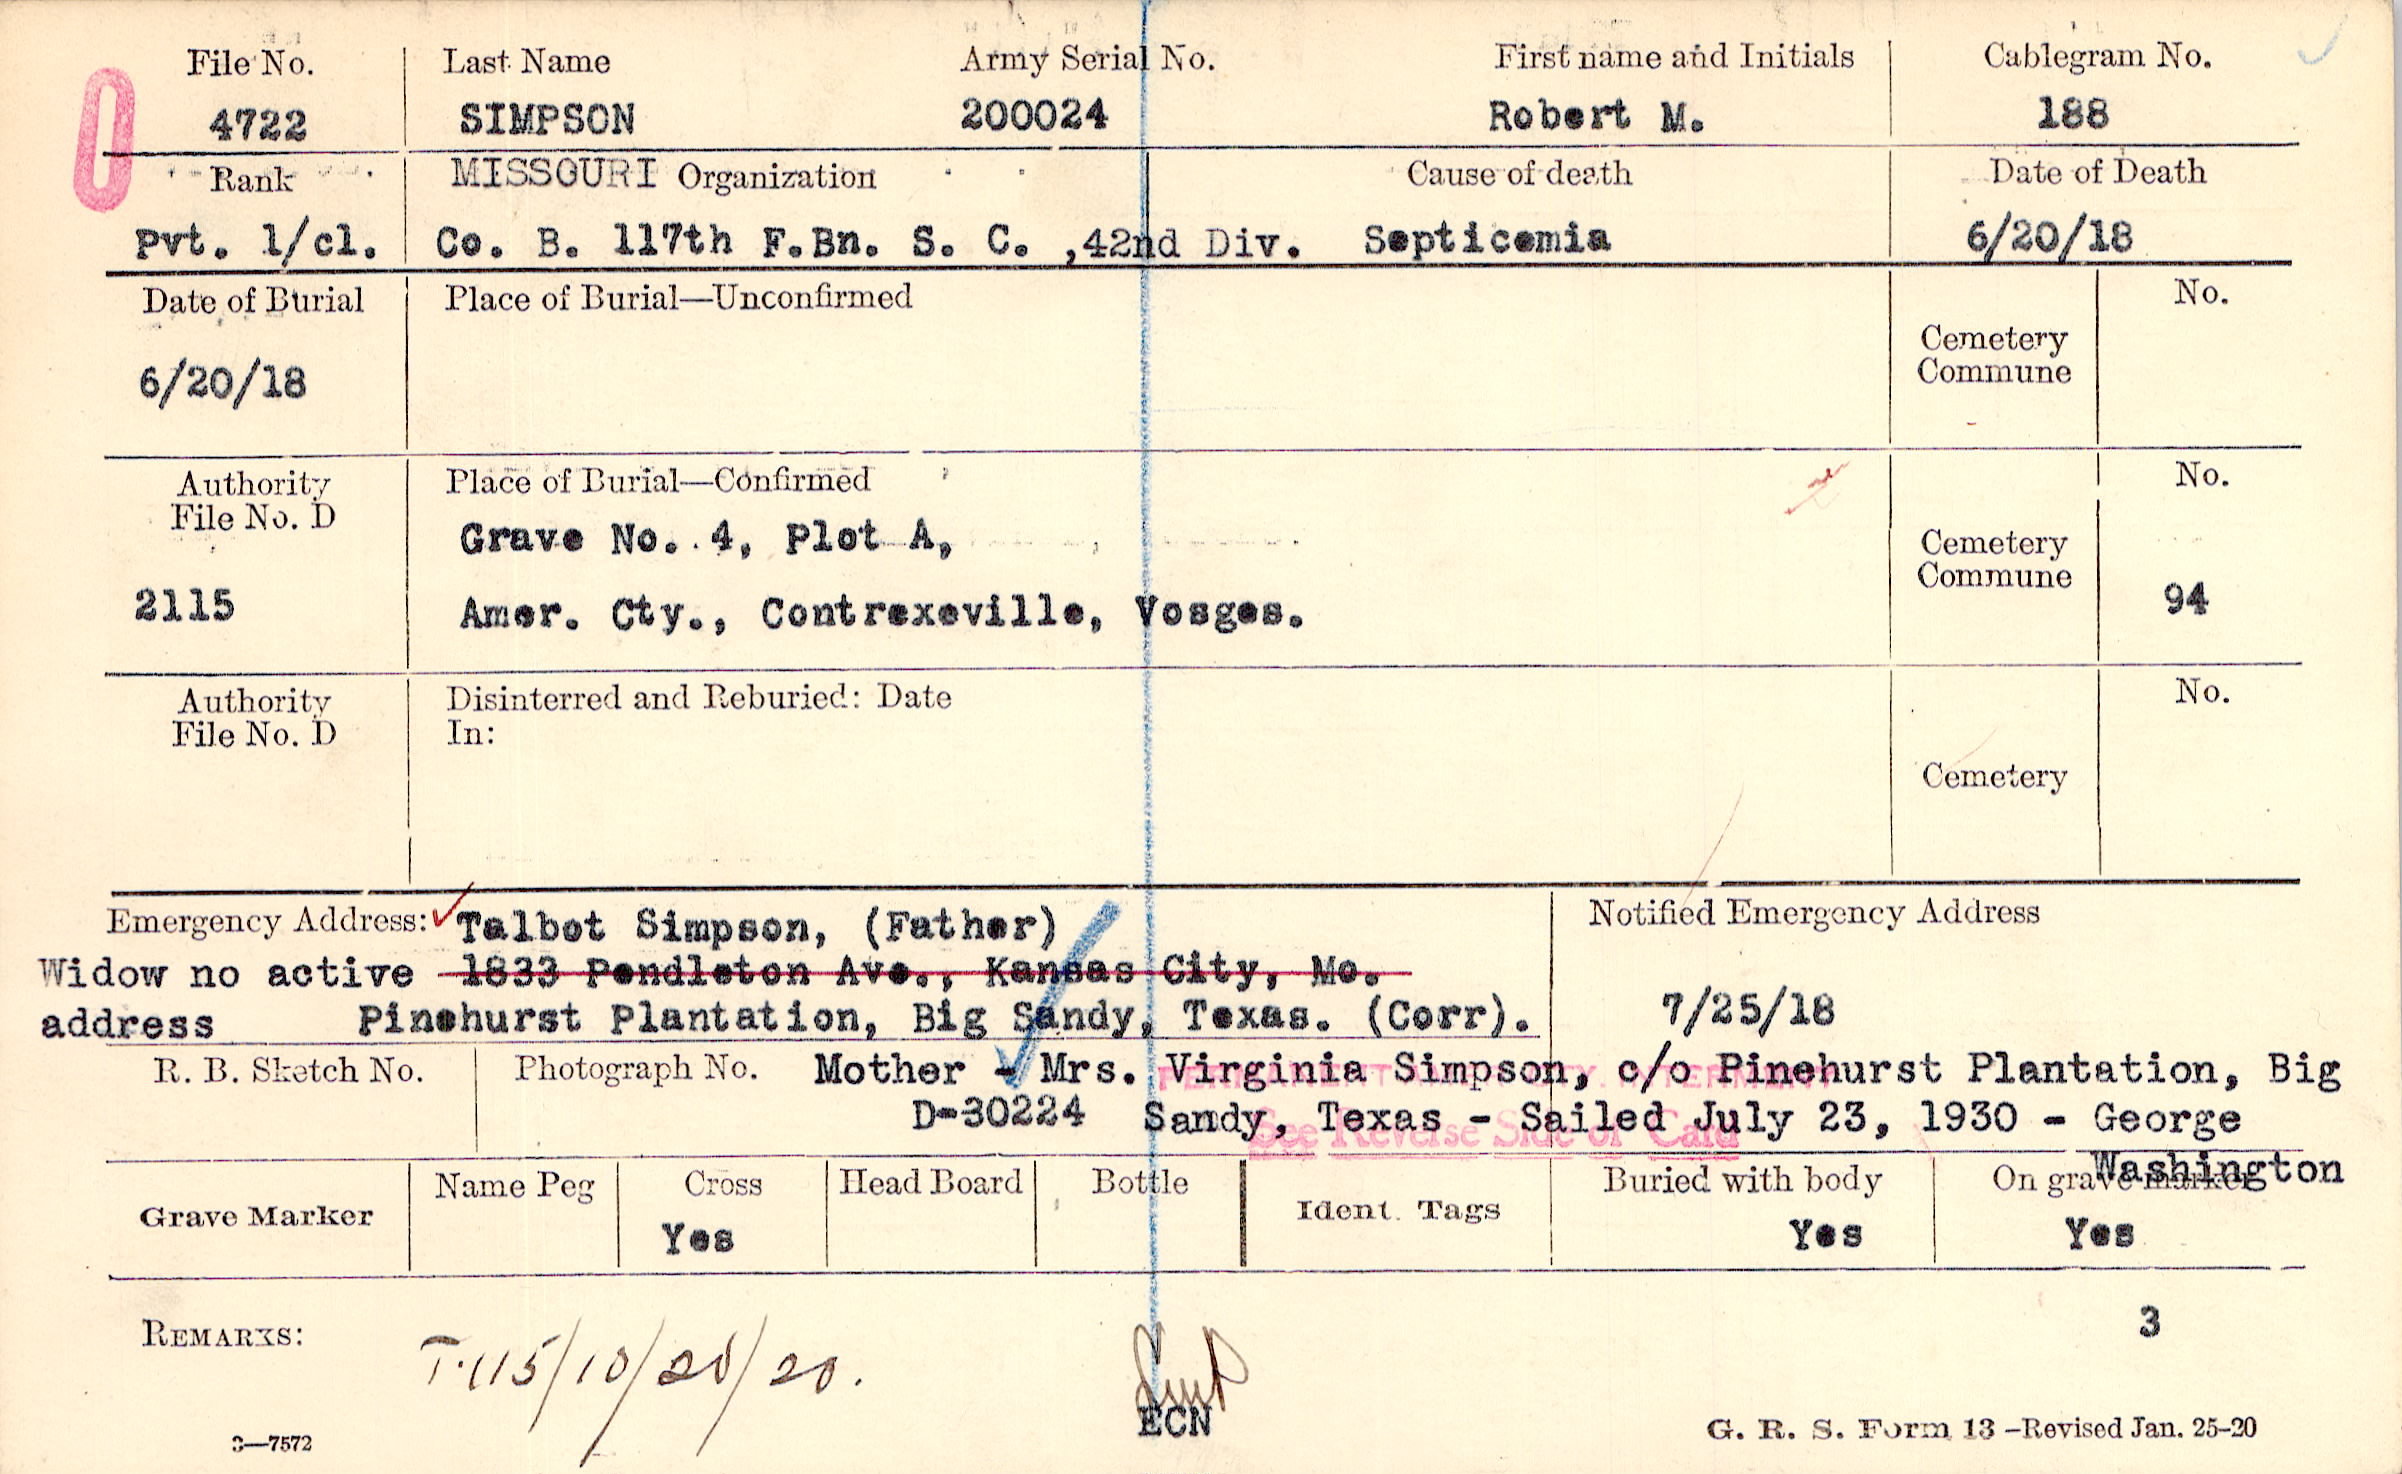 File No. Last Name Army Serial No. First name and Initials Cablegram No.
4722 SIMPSON 200024 Robert M. 188
Rank MISSOURI Organization Cause of death Date of Death
Pvt. 1/cl. Co. B. 117th F.Bn. S. C. ,42nd Div. Septicemia 6/20/18
Date of Burial Place of Burial—Unconfirmed No.
Cemetery
Commune
6/20/18
Authority Place of Burial—Confirmed No.
File No. D
Grave No. 4, Plot A,
Cemetery
Commune
2115 Amer. Cty., Contrexeville, Vosges. 94
Authority Disinterred and Reburied: Date No.
File No. D In:
Cemetery
Emergency Address: Talbot Simpson, (Father) Notified Emergency Address
Widow no active 1833 Pendleton Ave., Kansas City, Mo.
address Pinehurst Plantation, Big Sandy, Texas. (Corr). 7/25/18
R. B. Sketch No. Photograph No. Mother - Mrs. Virginia Simpson, c/o Pinehurst Plantation, Big
D-30224 Sandy, Texas - Sailed July 23, 1930 - George
See Reverse Side of Card
Washington
Grave Marker Name Peg Cross Head Board Bottle Ident. Tags Buried with body On grave marker
Yes Yes Yes
3
REMARKS: T.115/10/20/20.
ECN
3—7572 G. R. S. Form 13 —Revised Jan. 25-20